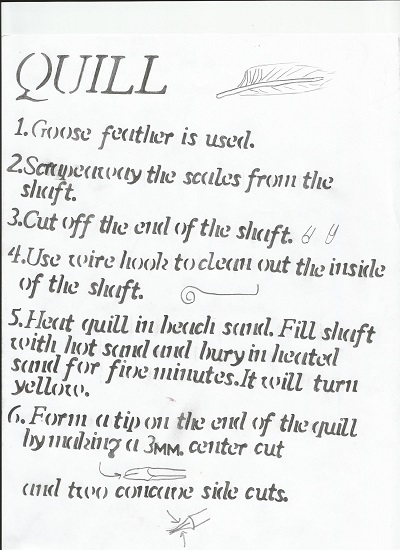 QUILL
1. Goose feather is used.
2. Scrape away the scales from the
shaft.
3. Cut off the end of the shaft.
4. Use wire hook to clean out the inside
of the shaft.
5. Heat quill in beach sand. Fill shaft
with hot sand and bury in heated
sand for five minutes. It will turn
yellow.
6. Form a tip on the end of the quill
by making a 3MM. center cut
and two concave side cuts.